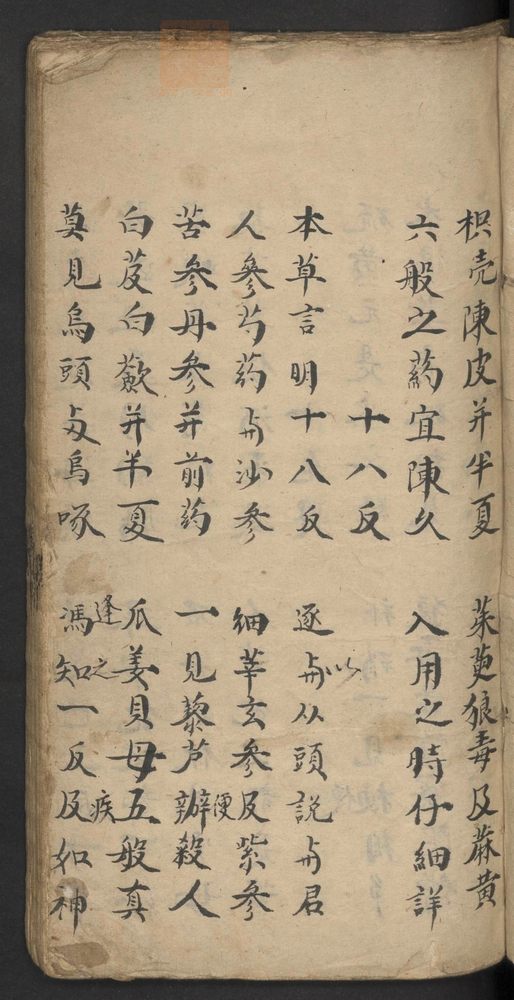 枳壳陳皮并半夏 茱萸狼毒及蔴黄
六般之药宜陳久 入用之時仔細詳
十八反
本草言明十八反 逐与以从頭說与君
人參芍药与沙參 細莘玄參及紫參
苦參丹參并前药 一見藜芦辦便殺人
白芨白蘞并半夏 瓜姜貝母五般真
莫見烏頭与烏啄 逢之馮知一反及疾如神